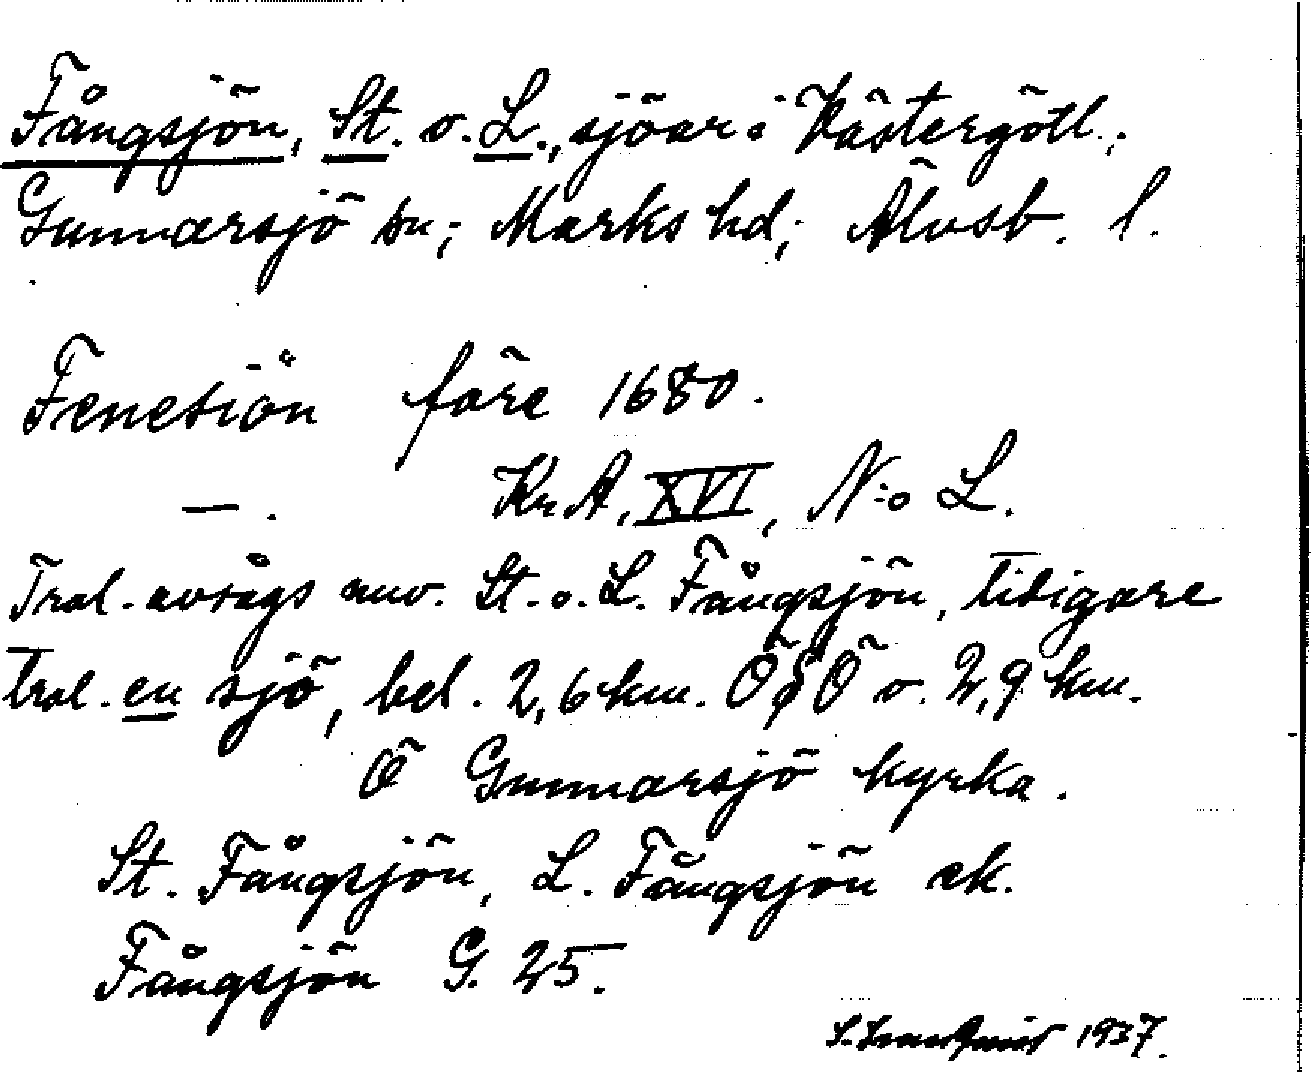 Fångsjön, St. o. L., sjöar i Västergötl.;
Gunnarsjö sn; Marks hd; Älvsb. l.
Fenesiön före 1680.
—. Kr.A, XVI, N:o L.
Trol. avsågs nuv. St. o. L. Fångsjön, tidigare
trol. en sjö, bel. 2,6 km. ÖSÖ o. 2,9 km.
Ö Gunnarsjö kyrka.
St. Fångsjön, L. Fångsjön ek.
Fångsjön G. 25.
1937.